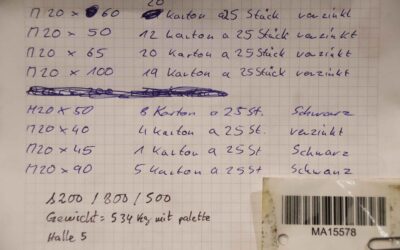 20
M20 x 60 Karton a 25 Stück verzinkt
M20 x 50 12 Karton a 25 Stück verzinkt
M20 x 65 20 Karton a 25 Stück verzinkt
M20 x 100 19 Karton a 25 Stück verzinkt
M20 x 50 8 Karton a 25 St. Schwarz
M20 x 40 4 Karton a 25 St. verzinkt
M20 x 45 1 Karton a 25 St Schwarz
M20 x 90 5 Karton a 25 St Schwarz
1200 / 800 / 500
Gewicht = 534 kg mit palette
Halle 5
MA15578